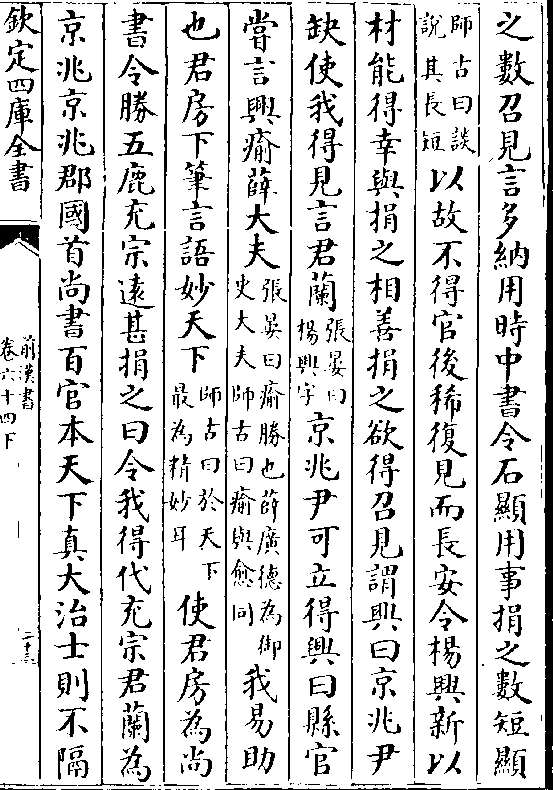 之數召見言多納用時中書令石顯用事捐之數短顯
師古曰談說其長短以故不得官後稀復見而長安令楊興新以
材能得幸與捐之相善捐之欲得召見謂興曰京兆尹
缺使我得見言君蘭張晏曰楊興字京兆尹可立得興曰縣官
嘗言興瘉薛大夫張晏曰瘉勝也薛廣德為御史大夫師古曰瘉與愈同我易助
也君房下筆言語妙天下師古曰於天下最為精妙耳使君房為尚
書令勝五鹿充宗遠甚捐之曰令我得代充宗君蘭為
京兆京兆郡國首尚書百官本天下真大治士則不隔
欽定四庫全書
前漢書
卷六十四下
二十三